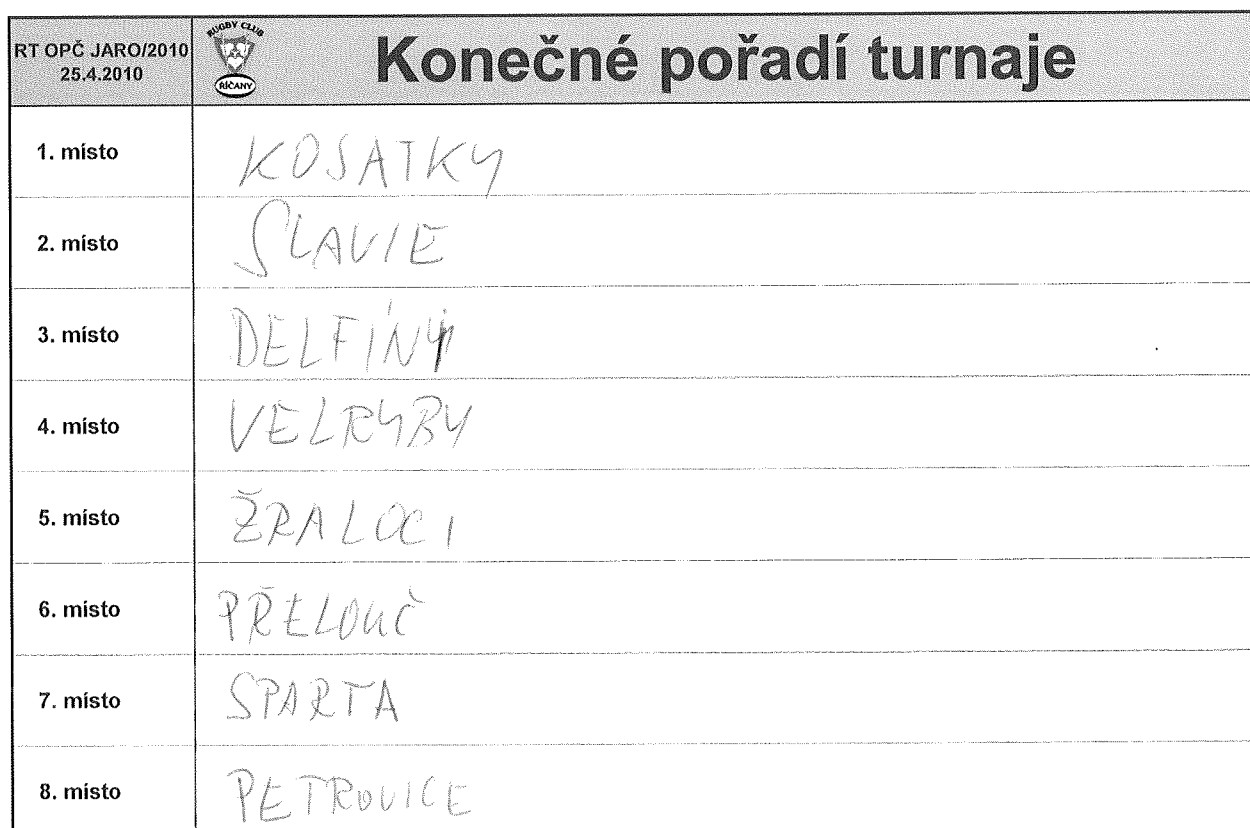 RT OPČ JARO/2010
25.4.2010
RUGBY CLUB
ŘÍČANY
Konečné pořadí turnaje
1. místo KOSATKY
2. místo SLAVIE
3. místo DELFÍNY
4. místo VELRYBY
5. místo ŽRALOCI
6. místo PŘELOUČ
7. místo SPARTA
8. místo PETROVICE